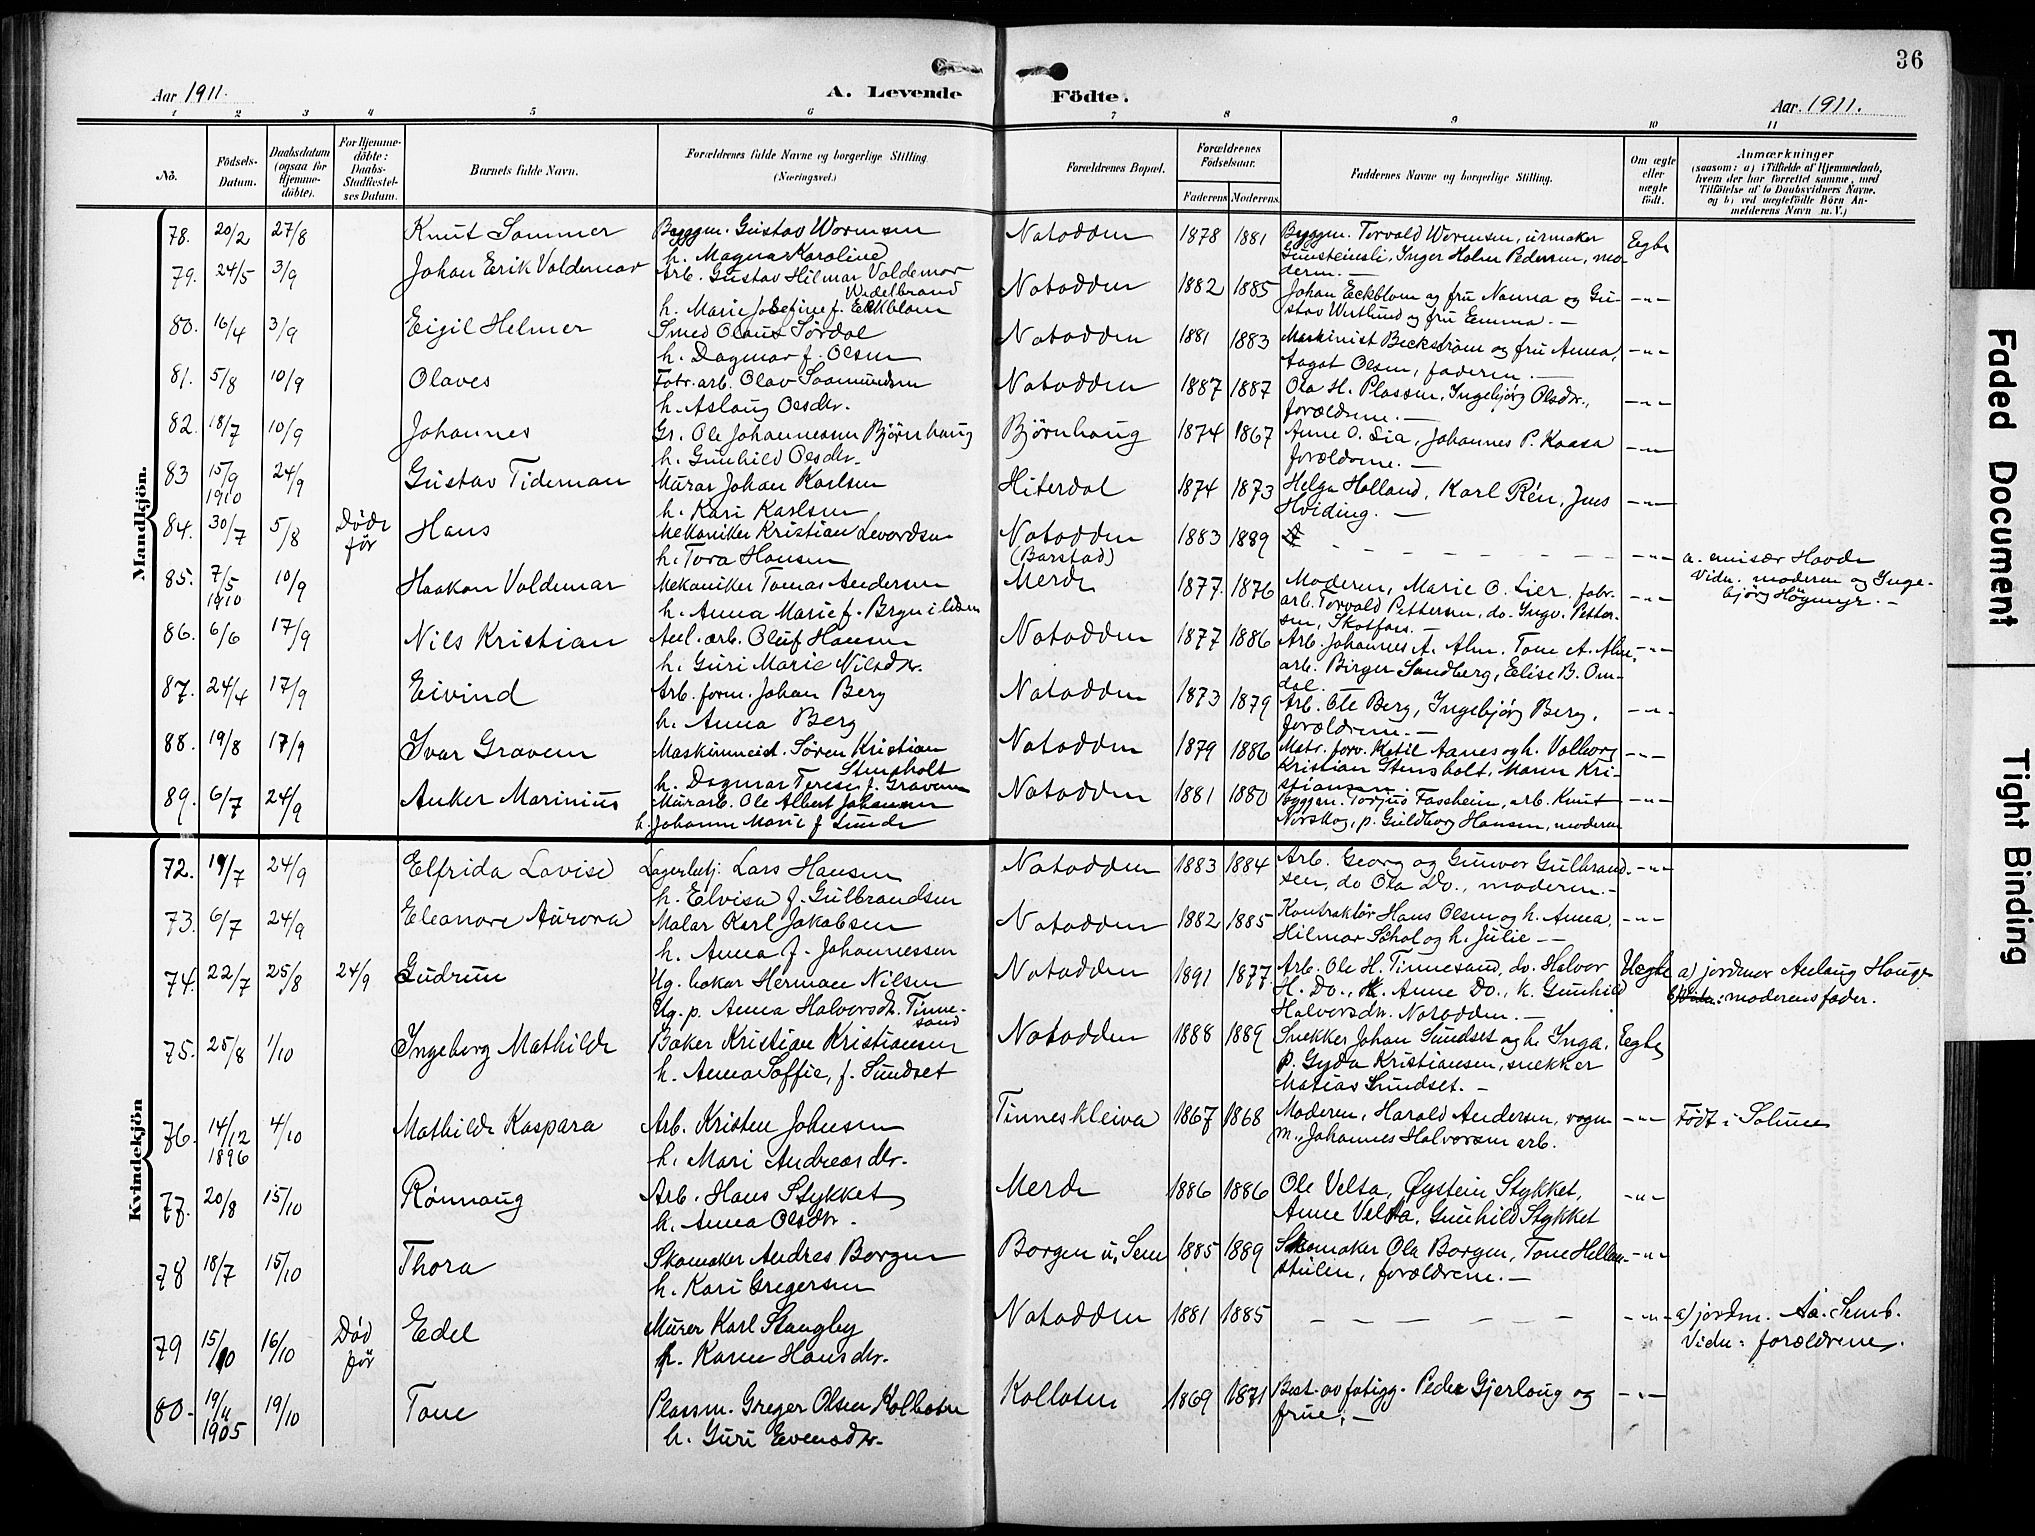 36
Aar 1911.
A. Levende Födte.
Aar. 1911.
1 2 3 4 5 6 7 8 9 10 11
No.
Födsels-Datum.
Daabsdatum (ogsaa for Hjemme-döbte).
For Hjemme-döbte: Daabs-Stadfæstelses Datum.
Barnets fulde Navn.
Forældrenes fulde Navne og borgerlige Stilling (Næringsvei.)
Forældrenes Bopæl.
Forældrenes Födselsaar.
Faderens Moderens.
Faddernes Navne og borgerlige Stilling.
Om ægte eller uægte födt.
Anmærkninger
(saasom: a) i Tilfælde af Hjemmedaab, hvem der har forrettet samme, med Tilföielse af to Daabsvidners Navne, og b) ved uægtefödte Börn Anmelderens Navn m. V.)
Mandkjön.
78. 20/2 27/8 Knut Sommer Byggm. Gustav Wormsen Notodden 1878 1881 Byggm. Torvald Wormsen, urmaker Egte
h. Magna Karoline Gunsteinsli, Inger Holm Pedersen, mo-
79. 24/5 3/9 Johan Erik Valdemar Arb. Gustav Hilmar Valdemar Notodden 1882 1885 deren. —
Widelbrand Johan Eckblom og fru Nanna og Gu- -"-
h. Marie Josefine f. Eckblom stav Westlund og fru Emma. —
80. 16/4 3/9 Eigil Helmer Smed Olaus Sørdal Notodden 1881 1883 Maskinist Beckstrøm og fru Anna, -"-
h. Dagmar f. Olsen Aagot Olsen, faderen. —
81. 5/8 10/9 Olaves Fabr. arb. Olav Saamundsen Notodden 1887 1887 Ola H. Plassen, Ingebjørg Olsdtr., -"-
h. Aslaug Olsdtr. forældrene. —
82. 18/7 10/9 Johannes Gr. Ole Johannessen Bjørnhaug Bjørnhaug 1874 1867 Anne O. Lia, Johannes P. Kaasa -"-
h. Gunhild Olsdtr. forældrene. —
83 15/9 1910 24/9 Gustav Tideman Murar Johan Karlsen Hiterdal 1874 1873 Helga Holland, Karl Rén, Jens -"-
h. Kari Karlsen Hviding. —
84. 30/7 5/8 Døde før Hans Mekaniker Kristian Levordsen Notodden (Barstad) 1883 1889 - - - - - - -"- a. emisær Hovde
h. Tora Hansen Vidn. moderen og Inge-
85. 7/5 1910 10/9 Haakon Valdemar Mekaniker Tomas Andersen Merde 1877. 1876 Moderen, Marie O. Lier, fabr. -"- bjørg Högmyr. —
h. Anna Marie f. Brynildsen arb. Torvald Pettersen, do. Ingv. Petter-
86. 6/6 17/9 Nils Kristian Anl. arb. Oluf Hansen Notodden 1877 1886 sen, Skotfos. —
h. Guri Marie Nilsdtr. Arb. Johannes A. Alm. Tone A. Alm, -"-
arb. Birger Sandberg, Elise B. Om-
87. 24/4 17/9 Eivind Arb. form. Johan Berg Notodden 1873 1879 dal. —
h. Anna Berg Arb. Ole Berg, Ingebjørg Berg, -"-
forældrene. —
88. 19/8 17/9 Ivar Gravem Maskinmeist. Søren Kristian Stensholt Notodden 1879 1886 Matr. forv. Ketil Aanes og h. Valborg -"-
h. Dagmar Terese f. Gravem Kristian Stensholt, Maren Kri-
stiansen
89. 6/7 24/9 Anker Marinius Murarb. Ole Albert Johansen Notodden 1881 1880 Byggm. Torjus Fascheim, arb. Knut -"-
h. Johanne Marie f. Lunde Norskog, p. Guldborg Hansen, moderen
Kvindekjön
72. 19/7 24/9 Elfrida Lovise Lagerbetj. Lars Hansen Notodden 1883 1884 Arb. Georg og Gunvor Gulbrand- -"-
h. Elvisa f. Gulbrandsen sen, do Ola Do., moderen. —
73. 6/7 24/9 Eleanore Aurora Malar Karl Jakobsen Notodden 1882 1885 Kontraktör Hans Olsen og h. Anna, -"-
h. Anna f. Johannessen Hilmar Schol og h. Julie —
74. 22/7 25/8 24/9 Gudrun Ug. baker Herman Nilsen Notodden 1891 1877. Arb. Ole H. Tinnesand, do. Halvor Uegte a) jordmor Anlaug Hauge
Ug. p. Anna Halvorsdtr. Tinnesand H. Do., k. Anne Do., k. Gunhild b) Vidn: moderens fader.
Halvorsdtr. Notodden. —
75. 25/8 1/10 Ingeborg Mathilde Baker Kristian Kristiansen Notodden 1888 1889 Snekker Johan Sundset og h. Inga, Egte
h. Anna Soffie, f. Sundset p. Gyda Kristiansen, snekker
Matias Sundset. —
76. 14/12 1896 4/10 Mathilde Kaspara Arb. Kristen Johnsen Tinneskleiva 1867 1868 Moderen, Harald Andersen, vogn- -"- Født i Solum
h. Mari Andreasdtr. m., Johannes Halvorsen arb.
77. 20/8 15/10 Rönnaug Arb. Hans Stykket Merde 1886 1886 Ole Velta, Øystein Stykket, -"-
h. Anna Olsdtr. Anne Velta, Gunhild Stykket
78 18/7 15/10 Thora Skomaker Andres Borgen Borgen u. Sem 1885 1889 Skomaker Ola Borgen, Tone Hellem- -"-
h. Kari Gregersen stulen, forældrene. —
79 15/10 16/10 Död før Edel Murer Karl Stangby Notodden 1881 1885 - - - - - - -"- a) jordm. Aa. Semb.
h. Karen Hansdtr. Vidn: forældrene.
80. 19/11 1905 19/10 Tone Plassm. Greger Olsen Kolbotn Kolbotn 1869 1871 Best. av fatigg. Peder Gjerloug og -"-
h. Guri Evensdtr. frue. —
Faded Document
Tight Binding